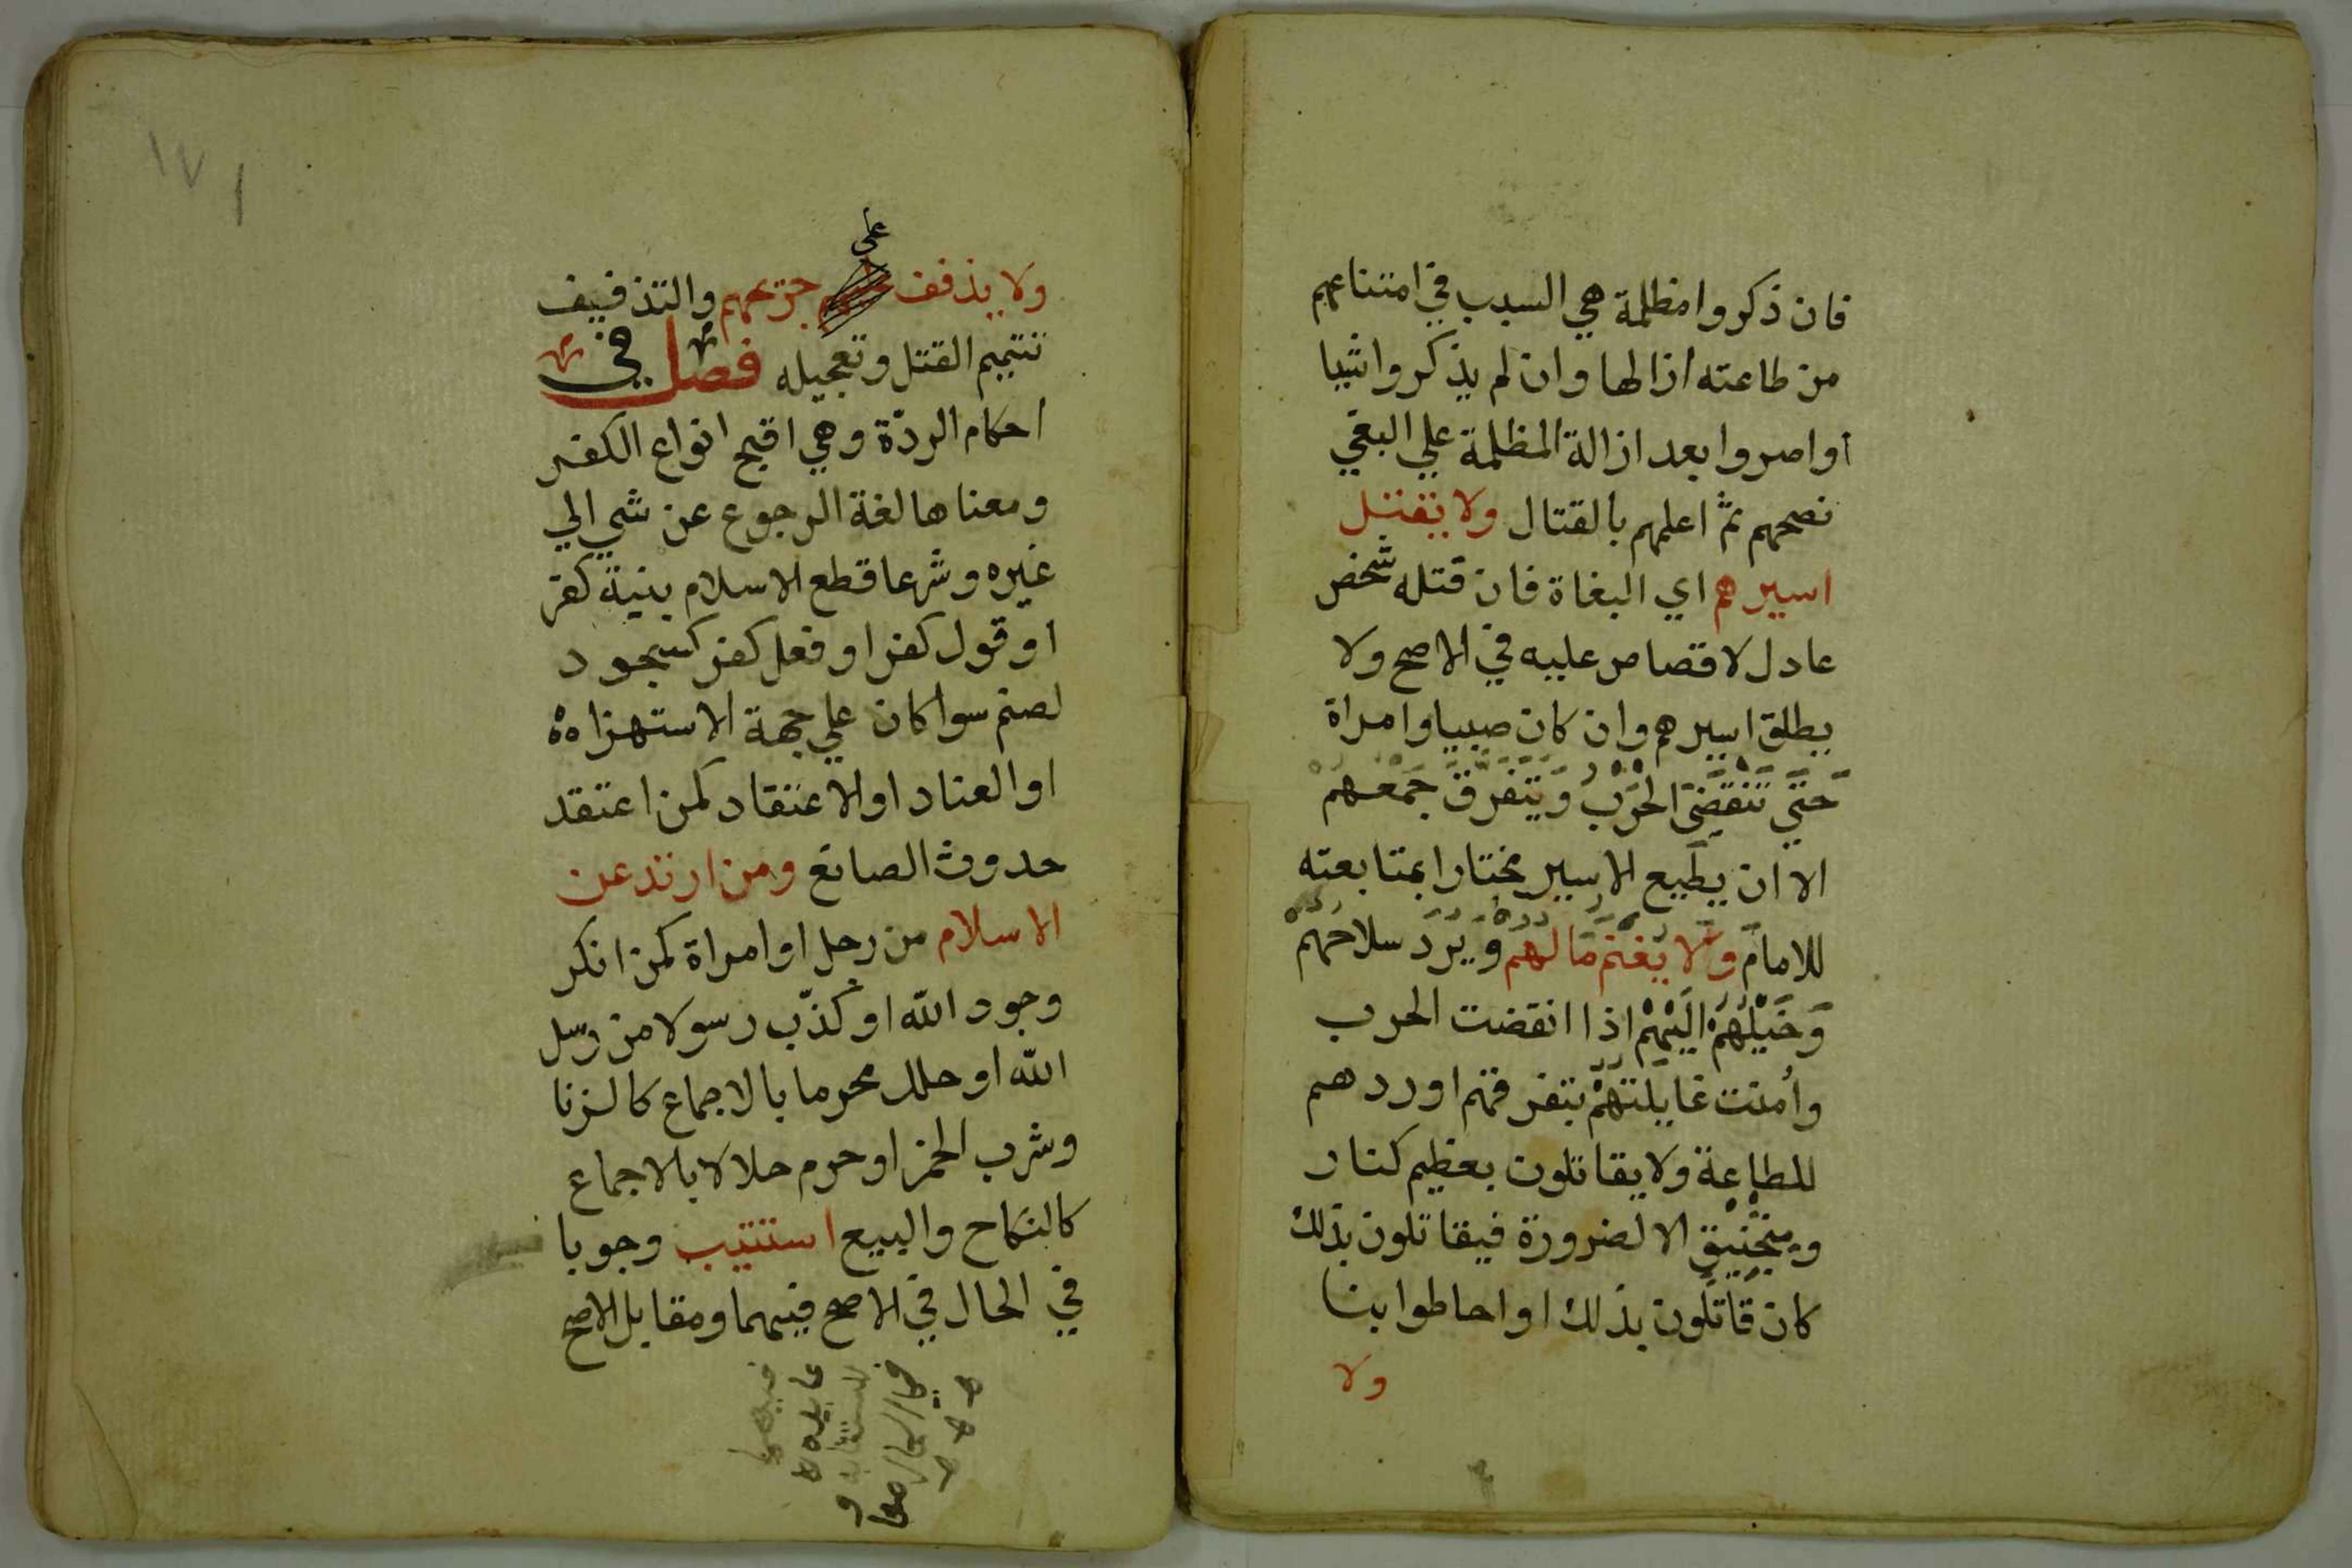 فان ذكروا مظلمة هي السبب في امتناعهم
من طاعته ازالها وان لم يذكروا شيا
او اصروا بعد ازالة المظلمة علي البغي
نصحهم ثمّ اعلمهم بالقتال ولا يقتل
اسيرهم اي البغاة فان قتله شخص
عادل لا قصاص عليه في الاصح ولا
يطلق اسيرهم وان كان صبيا وامراة
حَتّي تَنْقَضِيَ الحَرْبُ وَيَتَفَرَّقَ جَمْعُهُمْ
الا ان يطيع الاسير مختارا بمتابعته
للامام وَلا يُغْنَم مَالُهُم وَيُرَدُّ سلاحُهُمْ
وَخَيْلُهُمْ اليْهِمْ اذا انقضت الحرب
وأمنت غايلتهُمْ بتفرقهم او ردهم
للطاعة ولا يقاتلون بعظيم كنار
ومنجنيق الا لضرورة فيقاتلون بذلك
كان قاتلون بذلك او احاطوا بنا
ولا
١٧١
ولا يذفف علي جريحهم والتذفيف
تتميم القتل وتعجيله فصل في
احكام الردّة وهي اقبح انواع الكفر
ومعناها لغة الرجوع عن شي الي
غيره وشرعا قطع الاسلام بنية كفر
او قول كفر او فعل كفر كسجود
لصنم سوا كان علي جهة الاستهزاه
او العناد او الاعتقاد كمن اعتقد
حدوث الصانع ومن ارتد عن
الاسلام من رجل او امراة كمن انكر
وجود الله او كذّب رسولا من رسل
الله او حلل محرما بالاجماع كالزنا
وشرب الخمر او حرم حلالا بالاجماع
كالنكاح والبيع استتيب وجوبا
في الحال في الاصح فيهما ومقابل الاصح